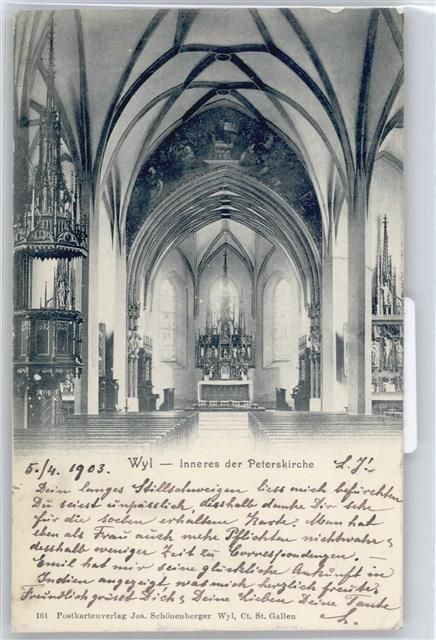 Wyl — Inneres der Peterskirche
5./4. 1903. L. J!
Dein langes Stillschweigen liess mich befürchten
Du seiest unpässlich, desshalb danke Dir sehr
für die soeben erhaltene Karte. Man hat
eben als Frau auch mehr Pflichten nichtwahr &
desshalb weniger Zeit zu Correspondenzen. —
Emil hat mir seine glückliche Ankunft in
Indien angezeigt, was mich herzlich freute.
Freundlich grüsst Dich & Deine Lieben Deine Tante
161 Postkartenverlag Jos. Schönenberger Wyl, Ct. St. Gallen